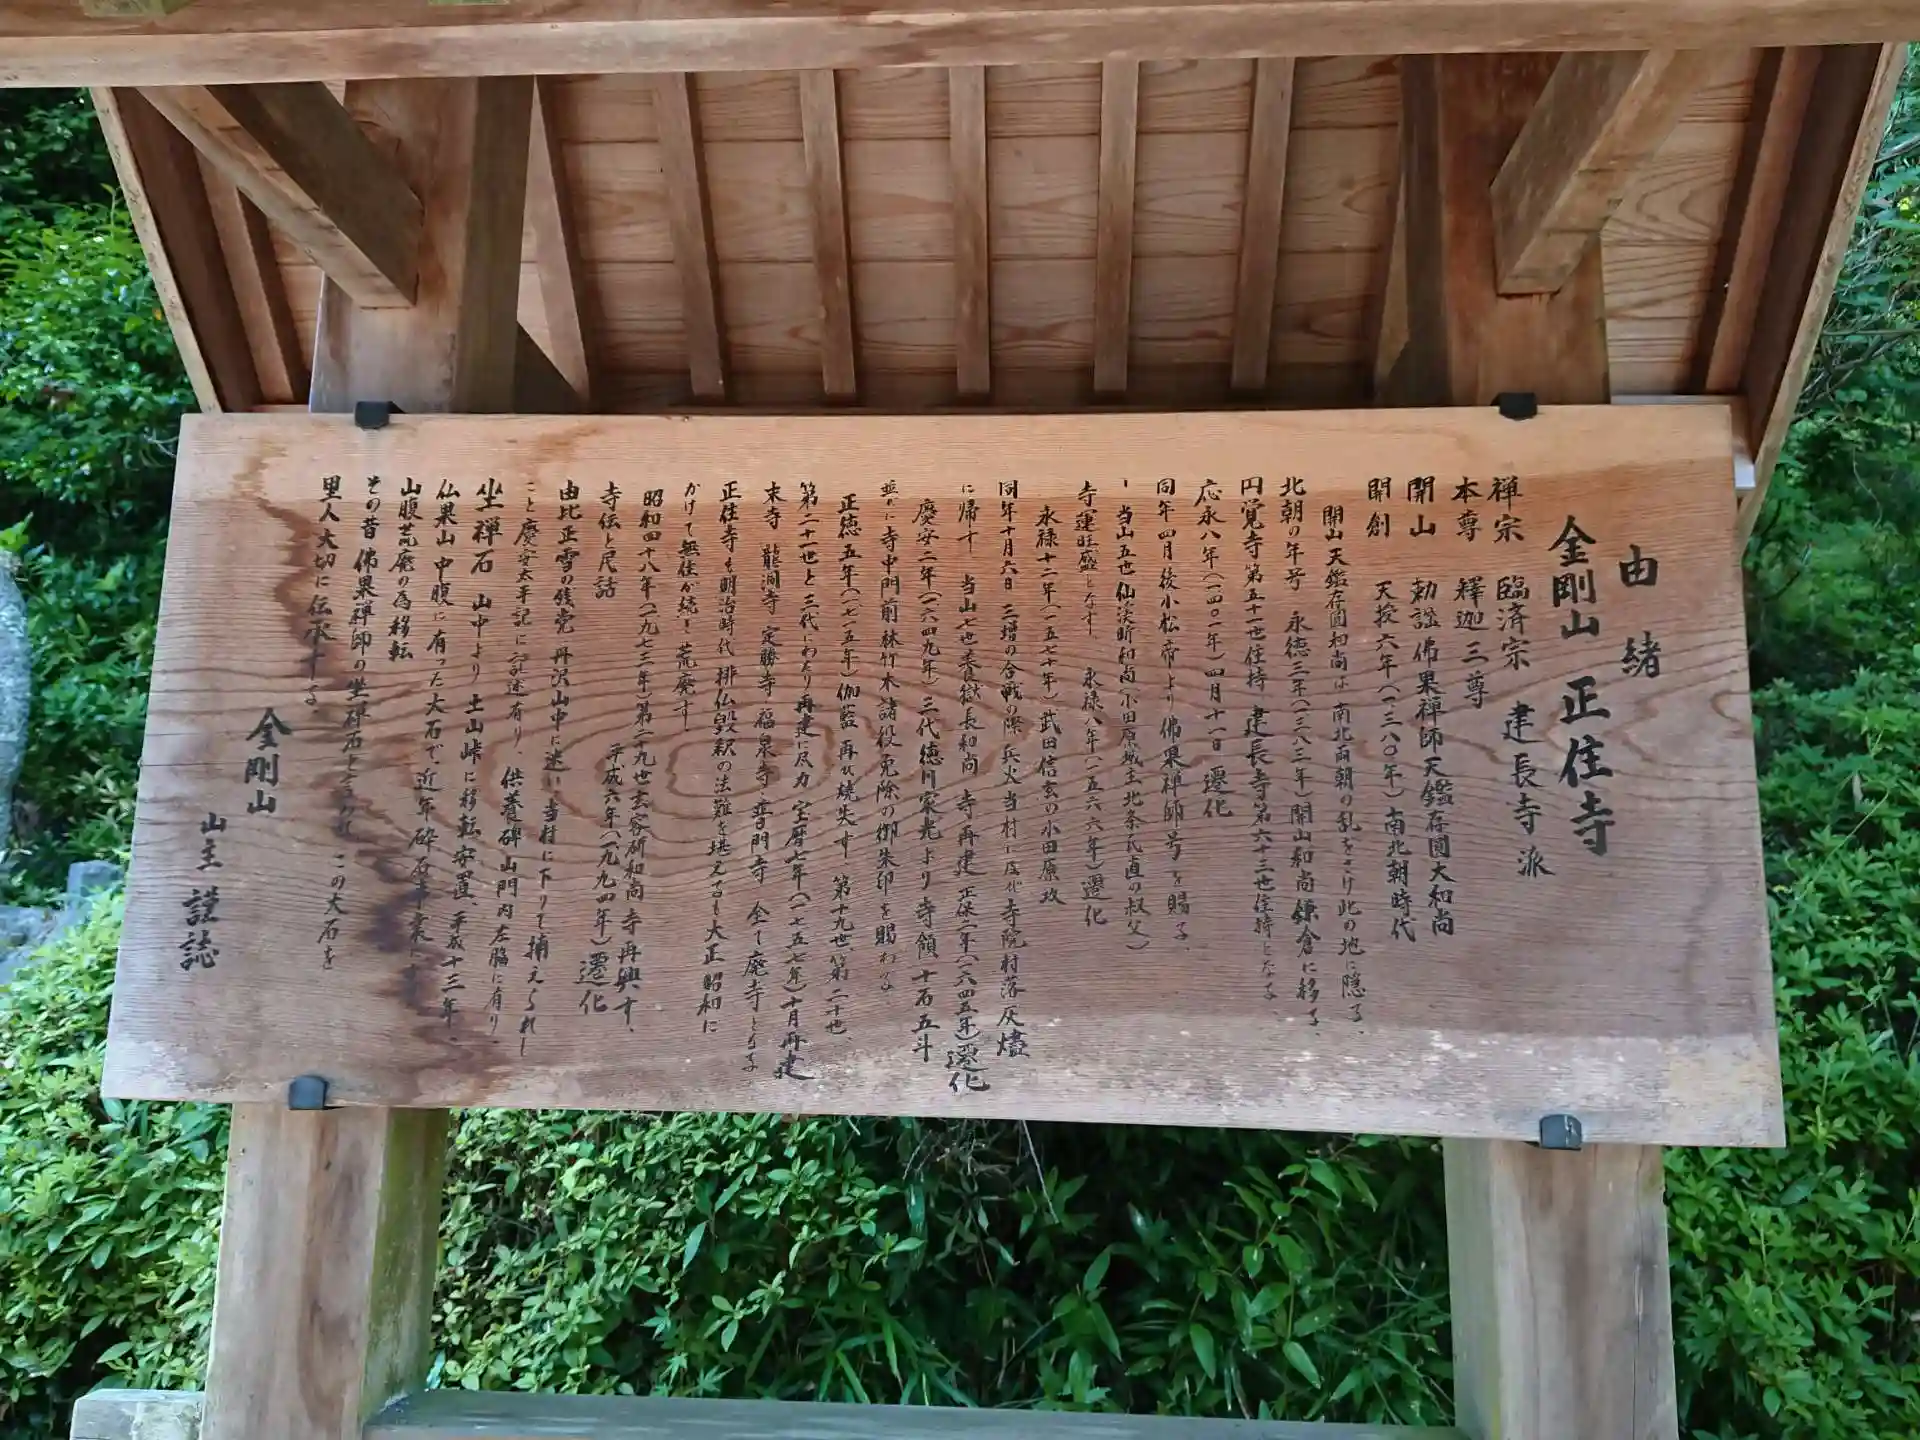 由緒
金剛山 正住寺
禅宗 臨済宗 建長寺派
本尊 釋迦三尊
開山 勅諡 佛果禅師天鑑存圓大和尚
開創 天授六年(一三八〇年)南北朝時代
開山天鑑存圓和尚は 南北両朝の乱をさけ此の地に隠る、
北朝の年号 永徳三年(一三八三年)開山和尚鎌倉に移る、
円覚寺第五十一世住持 建長寺第六十三世住持となる、
応永八年(一四〇一年)四月十一日 遷化
同年四月後小松帝より佛果禅師号を賜る、
当山五世仙渓昕和尚(小田原城主北条氏直の叔父)
寺運旺盛となす、 永禄八年(一五六六年)遷化
永禄十二年(一五七十年)武田信玄の小田原攻
同年十月六日 三増の合戦の際 兵火 当村に及び 寺院村落灰燼
に帰す 当山七世養獄長和尚 寺再建 正保二年(一六四五年)遷化
慶安二年(一六四九年)三代徳川家光より寺領 十石五斗
並びに寺中門前林竹木諸役免除の御朱印を賜わる
正徳五年(一七一五年)伽藍 再び焼失す 第十九世、第二十世、
第二十一世と三代にわたり再建に尽力 宝暦七年(一七五七年)十月再建
末寺 龍洞寺 定勝寺 福泉寺 普門寺 全て廃寺となる
正住寺も明治時代 排仏毀釈の法難を堪えるも大正 昭和に
かけて無住が続き荒廃す、
昭和四十八年(一九七三年)第二十九世玄容研和尚 寺再興す、
平成六年(一九九四年)遷化
寺伝と民話
由比正雪の残党 丹沢山中に迷い 当村に下りて捕えられし
こと慶安太平記に記述有り、供養碑山門内左脇に有り、
坐禅石 山中より 土山峠に移転安置、平成十三年、
仏果山中腹に有った大石で、近年砕石事業に
山腹荒廃の為移転
その昔 佛果禅師の坐禅石と言われ この大石を
里人大切に伝承する、
金剛山
山主 謹誌